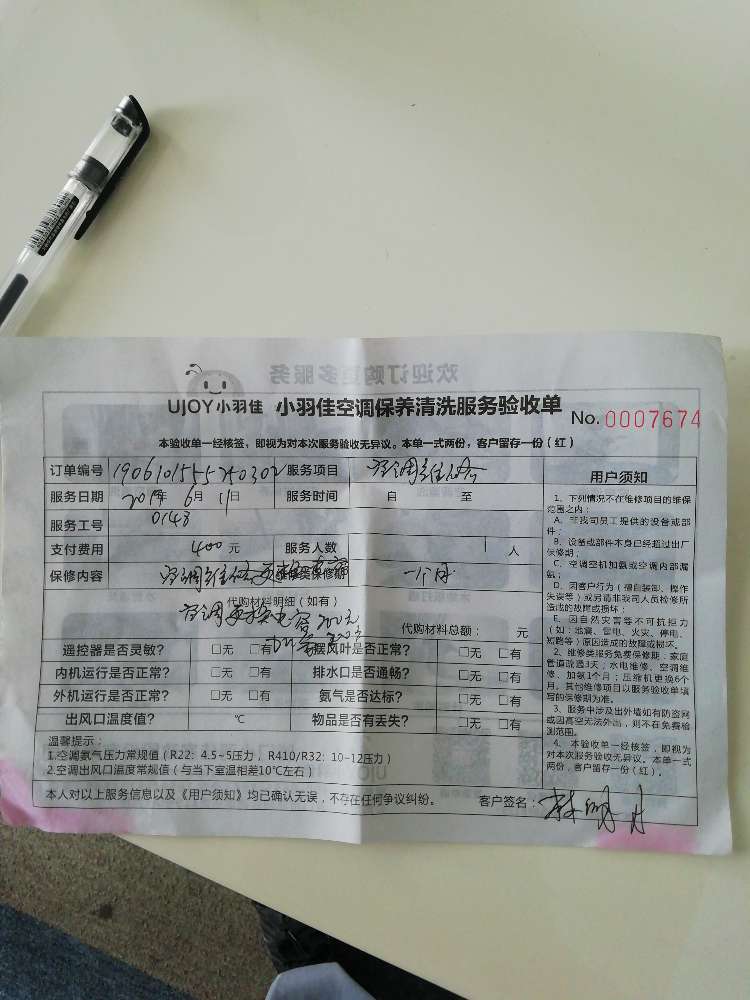 欢迎订购更多服务
UJOY小羽佳 小羽佳空调保养清洗服务验收单 No. 0007674
本验收单一经核签、即视为对本次服务验收无异议。本单一式两份，客户留存一份（红）
订单编号 190610155525 0302 服务项目 空调维修
服务日期 2019年 6月 11日 服务时间 自 至
服务工号 0148
支付费用 400 元 服务人数 人
保修内容 空调维修更换电容 维修类保修期 一个月
代购材料明细（如有）
空调更换电容200元
代购材料总额： 元
遥控器是否灵敏？ □无 □有 摆风叶是否正常？ □无 □有
内机运行是否正常？ □无 □有 排水口是否通畅？ □无 □有
外机运行是否正常？ □无 □有 氨气是否达标？ □无 □有
出风口温度值？ ℃ 物品是否有丢失？ □无 □有
温馨提示：
1.空调氨气压力常规值（R22：4.5~5压力，R410/R32：10-12压力）
2.空调出风口温度常规值（与当下室温相差10℃左右）
本人对以上服务信息以及《用户须知》均已确认无误，不存在任何争议纠纷。 客户签名：林明
用户须知
1、下列情况不在维修项目的维保
范围之内：
A、非我司员工提供的设备或部
件；
B、设备或部件本身已经超过出厂
保修期；
C、空调空机加氨或空调内部漏
氨；
D、因客户行为（擅自装卸、操作
失误等）或另请非我司人员检修所
造成的故障或损坏；
E、因自然灾害等不可抗拒力
（如：地震、雷电、火灾、停电、
短路等）原因造成的故障或损坏。
2、维修类服务免费保修期：家庭
管道疏通3天；水电维修、空调维
修、加氨1个月；压缩机更换6个
月，其他维修项目以服务验收单填
写的保修期为准。
3、服务中涉及出外墙如有防盗网
或因高空无法外出，则不在免费检
测范围。
4、本验收单一经核签，即视为
对本次服务验收无异议。本单一式
两份，客户留存一份（红）。